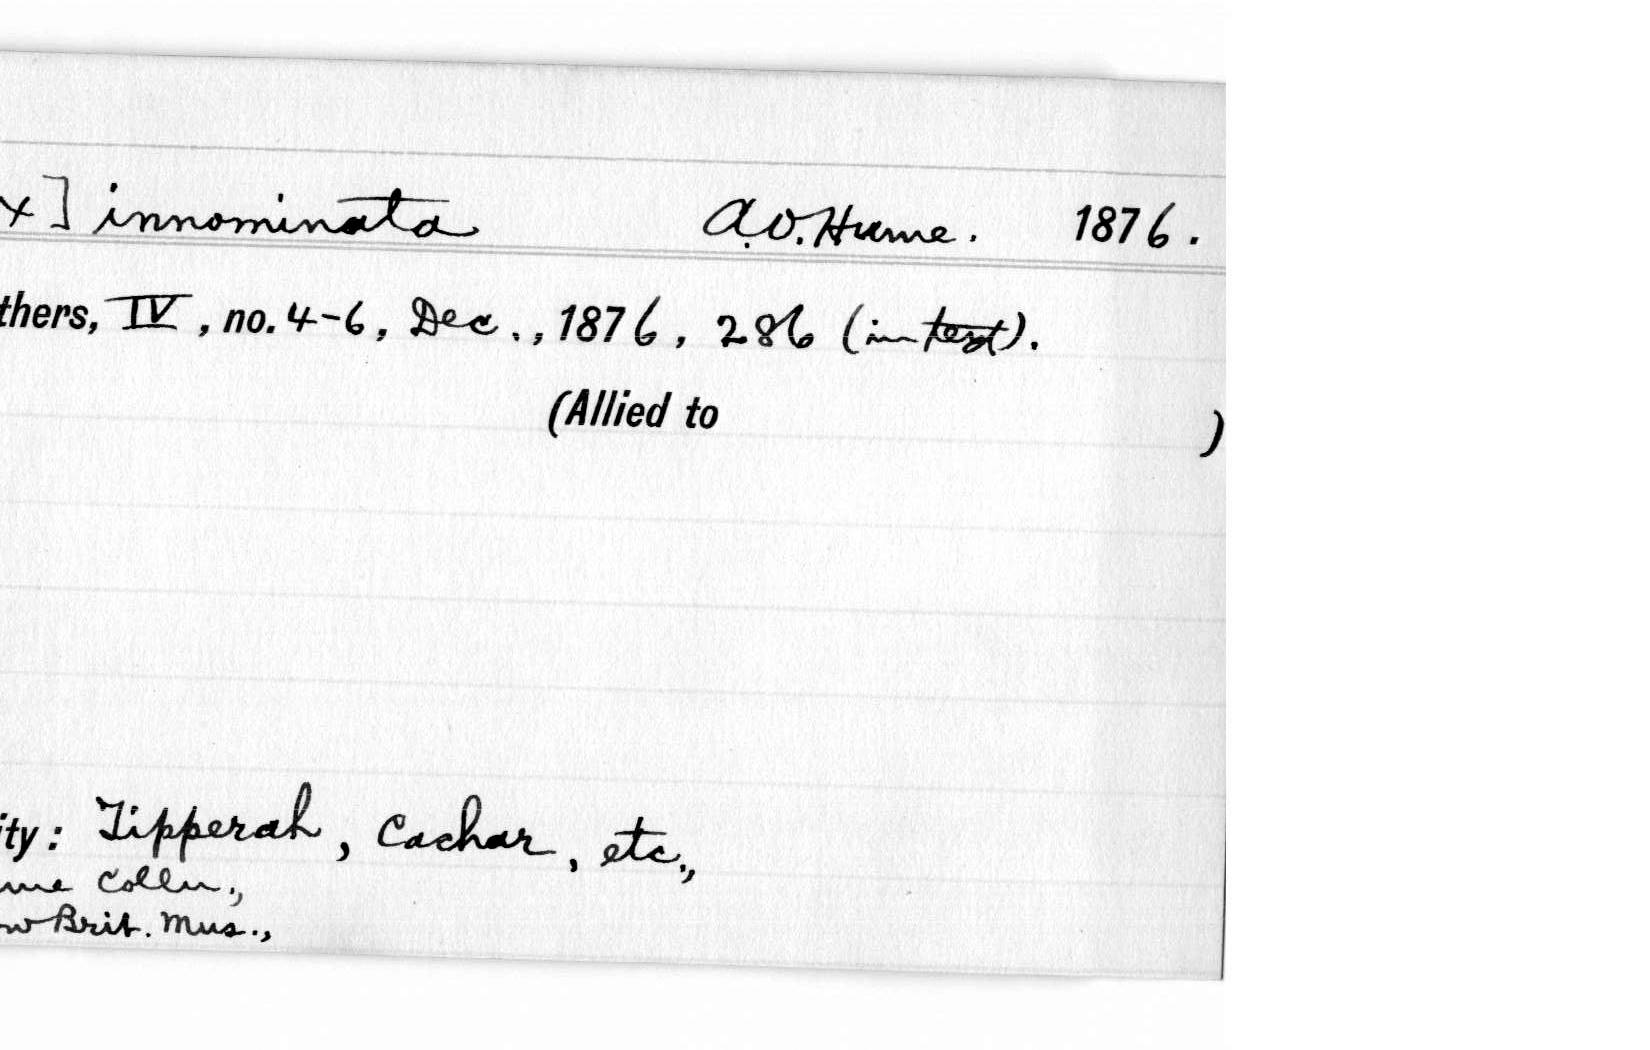 x] innominata A.O. Hume. 1876.
thers, IV, no. 4-6, Dec., 1876, 286 (in text).
(Allied to )
ity: Tipperah, Cachar, etc.,
ume Colln.,
ow Brit. Mus.,